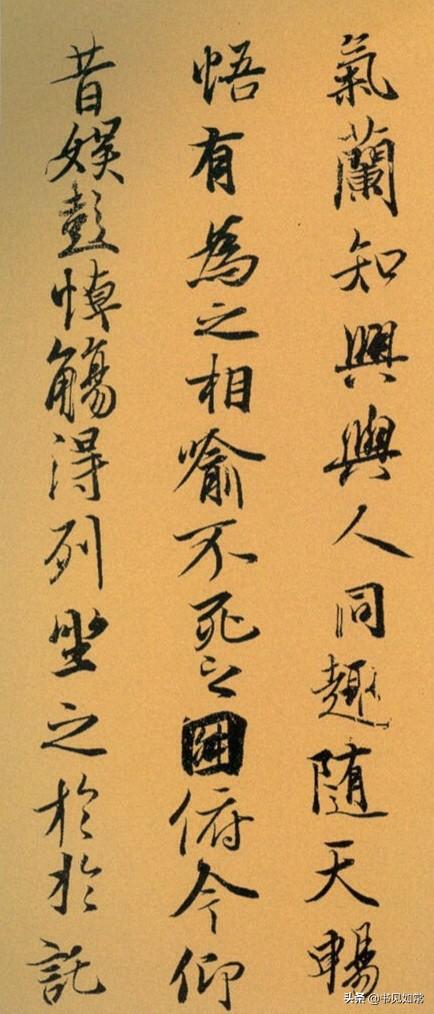 氣蘭知興與人同趣隨天暢
悟有為之相喻不死之因俯今仰
昔娛彭悼觴得列坐之於於託
头条 @书见如常